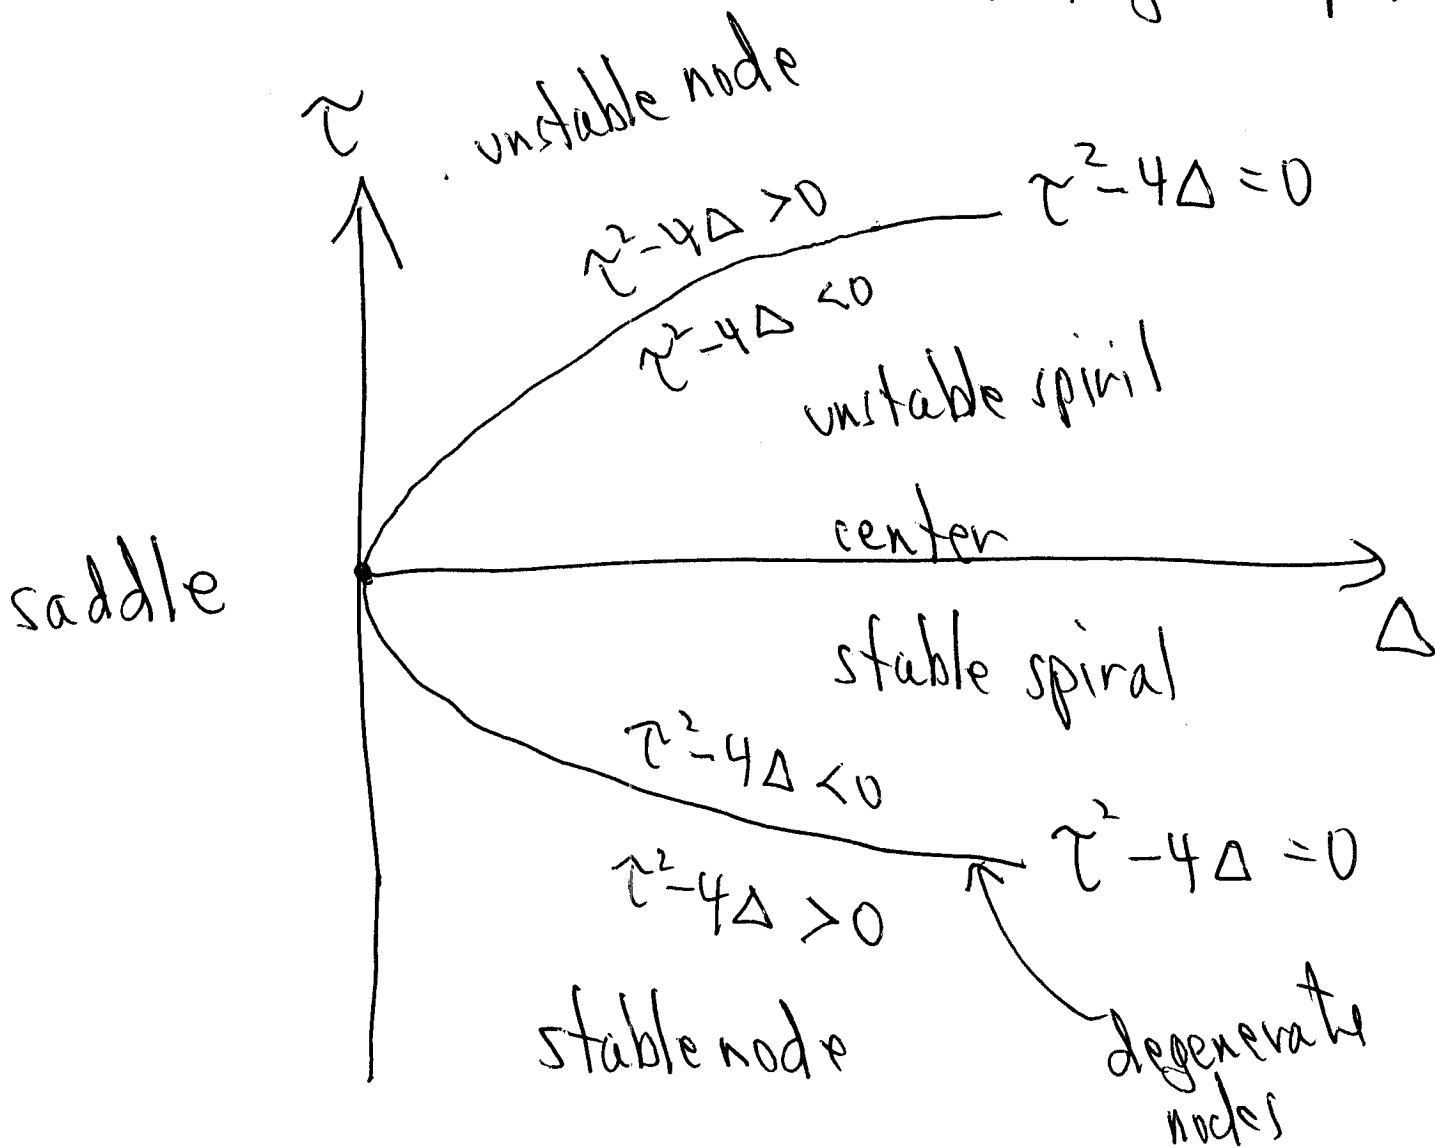 unstable node
τ
τ²-4Δ=0
τ²-4Δ>0
τ²-4Δ<0
unstable spiril
center
saddle
Δ
stable spiral
τ²-4Δ<0
τ²-4Δ=0
τ²-4Δ>0
stable node
degenerate
nodes